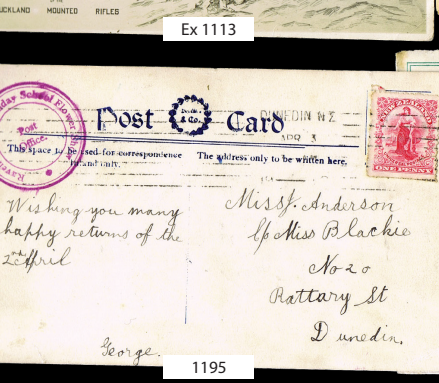 UCKLAND MOUNTED RIFLES
Ex 1113
day School Flower Show
Post
Office.
Raven
Post Card
& Co.
DUNEDIN N.Z
APR 3
This space to be used for correspondence
Inland only.
The address only to be written here.
ONE PENNY
Wishing you many
happy returns of the
2nd April
George.
Miss J. Anderson
C/o Miss Blackie
No 20
Rattary St
Dunedin.
1195